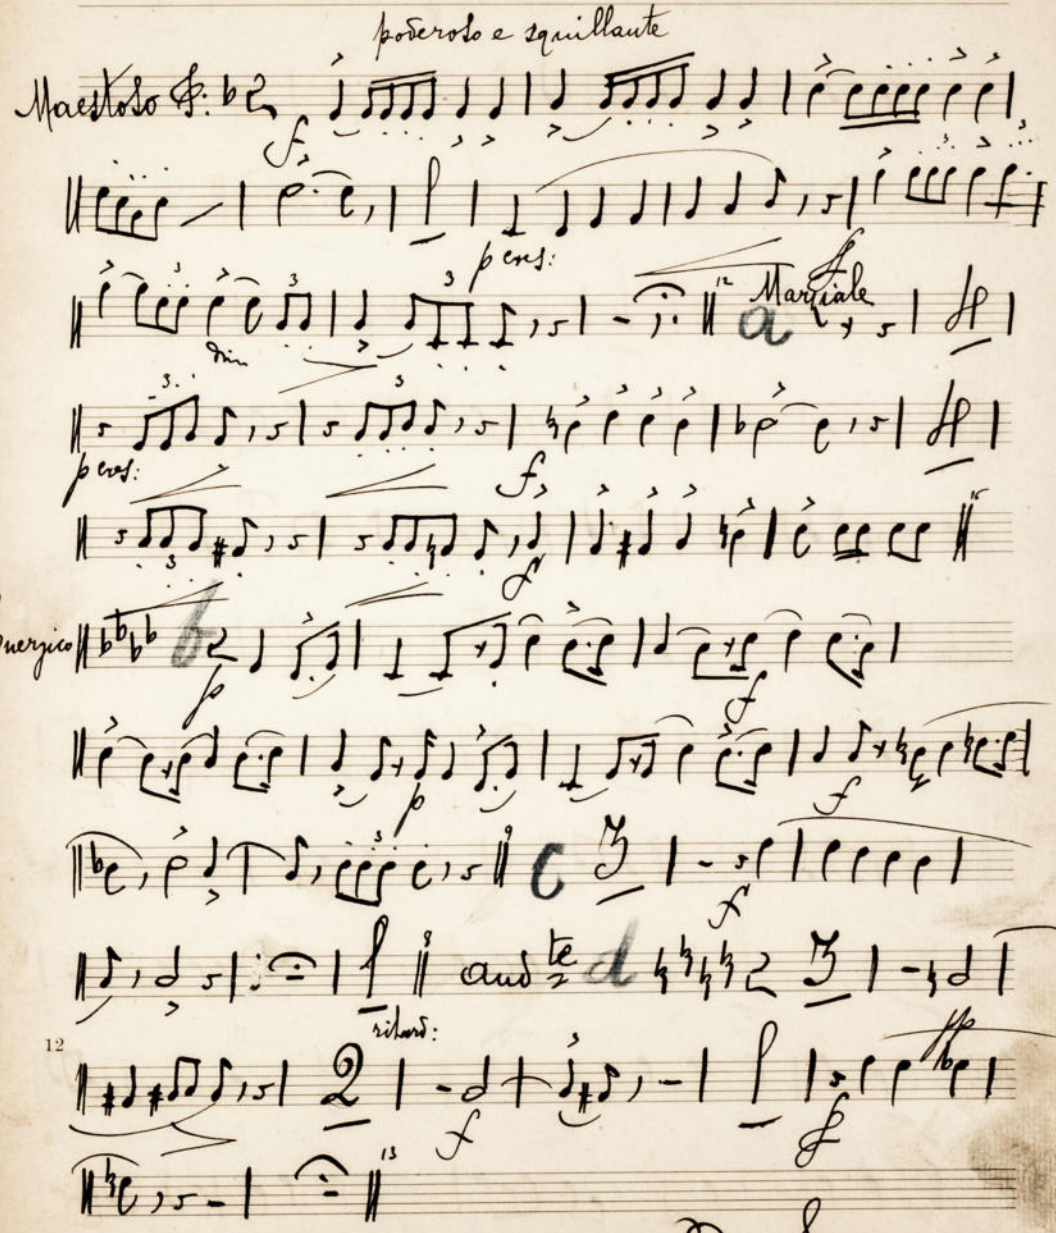 poderoso e squillante
Maestoso 2
f
3
p cres:
3 3 3 f
12 Marziale
a
dim
3 3
p cres:
f
3
f
16
Energico b 2
p
f
p f
3 9 C 3
f
8 and te d 2 3
ritard:
pp
12
2
f
f
13